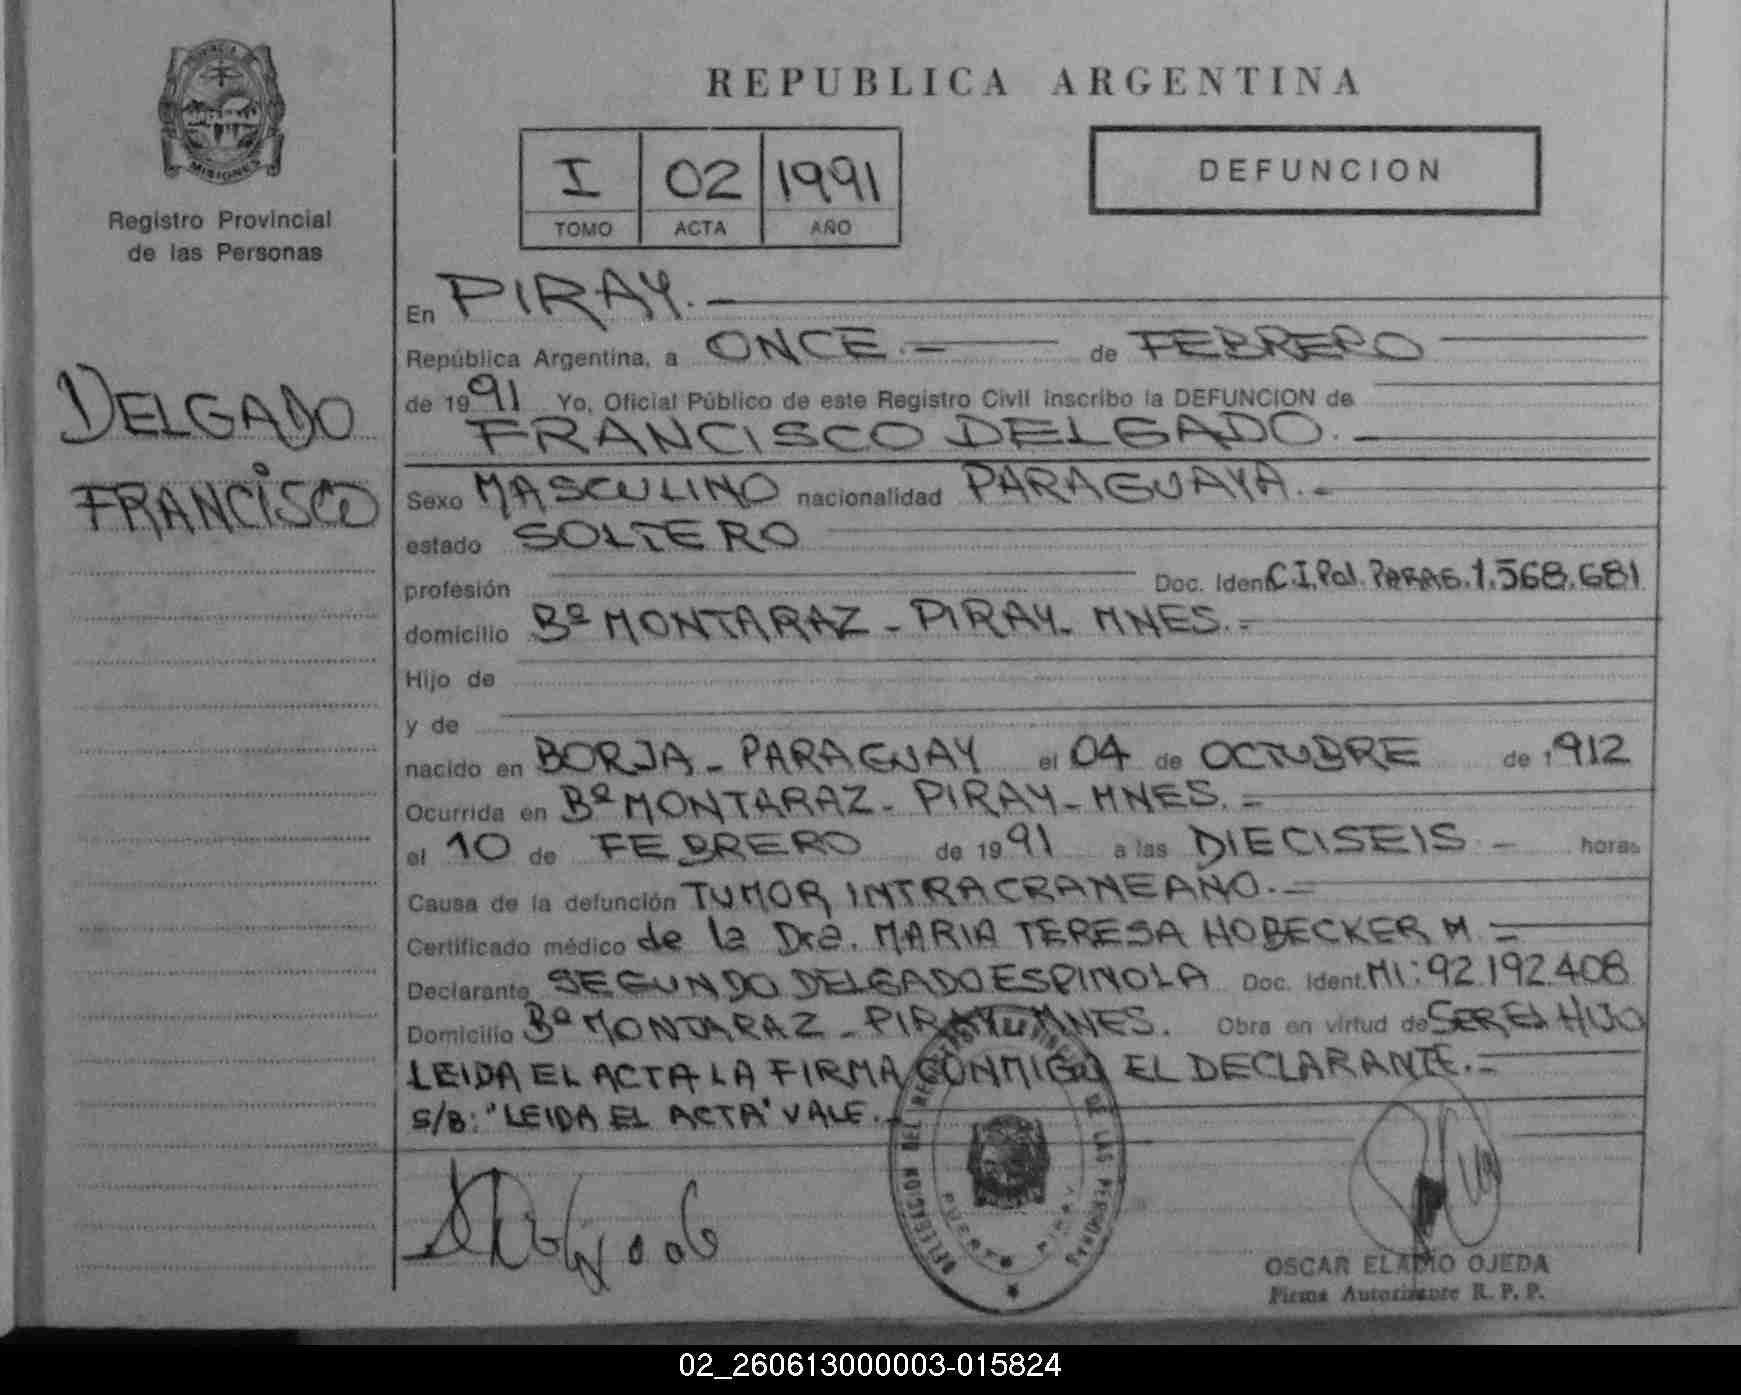 PROVINCIA
MISIONES
Registro Provincial
de las Personas
DELGADO
FRANCISCO
REPUBLICA ARGENTINA
I 02 1991
TOMO ACTA AÑO
DEFUNCION
En PIRAY.
República Argentina, a ONCE.= de FEBRERO
de 1991 Yo, Oficial Público de este Registro Civil inscribo la DEFUNCION de
FRANCISCO DELGADO.
Sexo MASCULINO nacionalidad PARAGUAYA.=
estado SOLTERO
profesión Doc. Ident C.I.Pol. PARAG.1.568.681
domicilio Bº MONTARAZ - PIRAY - MNES.=
Hijo de
y de
nacido en BORJA - PARAGUAY el 04 de OCTUBRE de 1912
Ocurrida en Bº MONTARAZ - PIRAY - MNES.=
el 10 de FEBRERO de 1991 a las DIECISEIS - horas
Causa de la defunción TUMOR INTRACRANEANO.=
Certificado médico de la Dra. MARIA TERESA HOBECKER M.=
Declarante SEGUNDO DELGADO ESPINOLA Doc. Ident. MI: 92.192.408
Domicilio Bº MONTARAZ - PIRAY - MNES. Obra en virtud de SER EL HIJO
LEIDA EL ACTA LA FIRMA CONMIGO EL DECLARANTE.=
S/B: "LEIDA EL ACTA" VALE.
DELEGACION DEL REGISTRO PROVINCIAL DE LAS PERSONAS
PUERTO PIRAY
OSCAR ELADIO OJEDA
Firma Autorizante R. P. P.
02_260613000003-015824